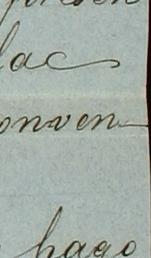 lac
onven
hago